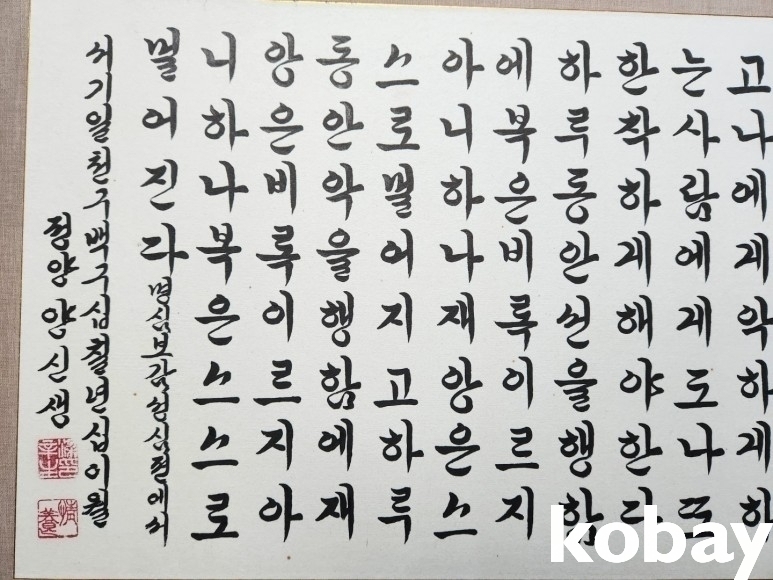 고나에게악하게하
는사람에게도나또
한착하게해야한다
하루동안선을행함
에복은비록이르지
아니하나재앙은스
스로멀어지고하루
동안악을행함에재
앙은비록이르지아
니하나복은스스로
멀어진다 명심보감선심편에서
서기일천구백구십칠년십이월
정양양신생
kobay